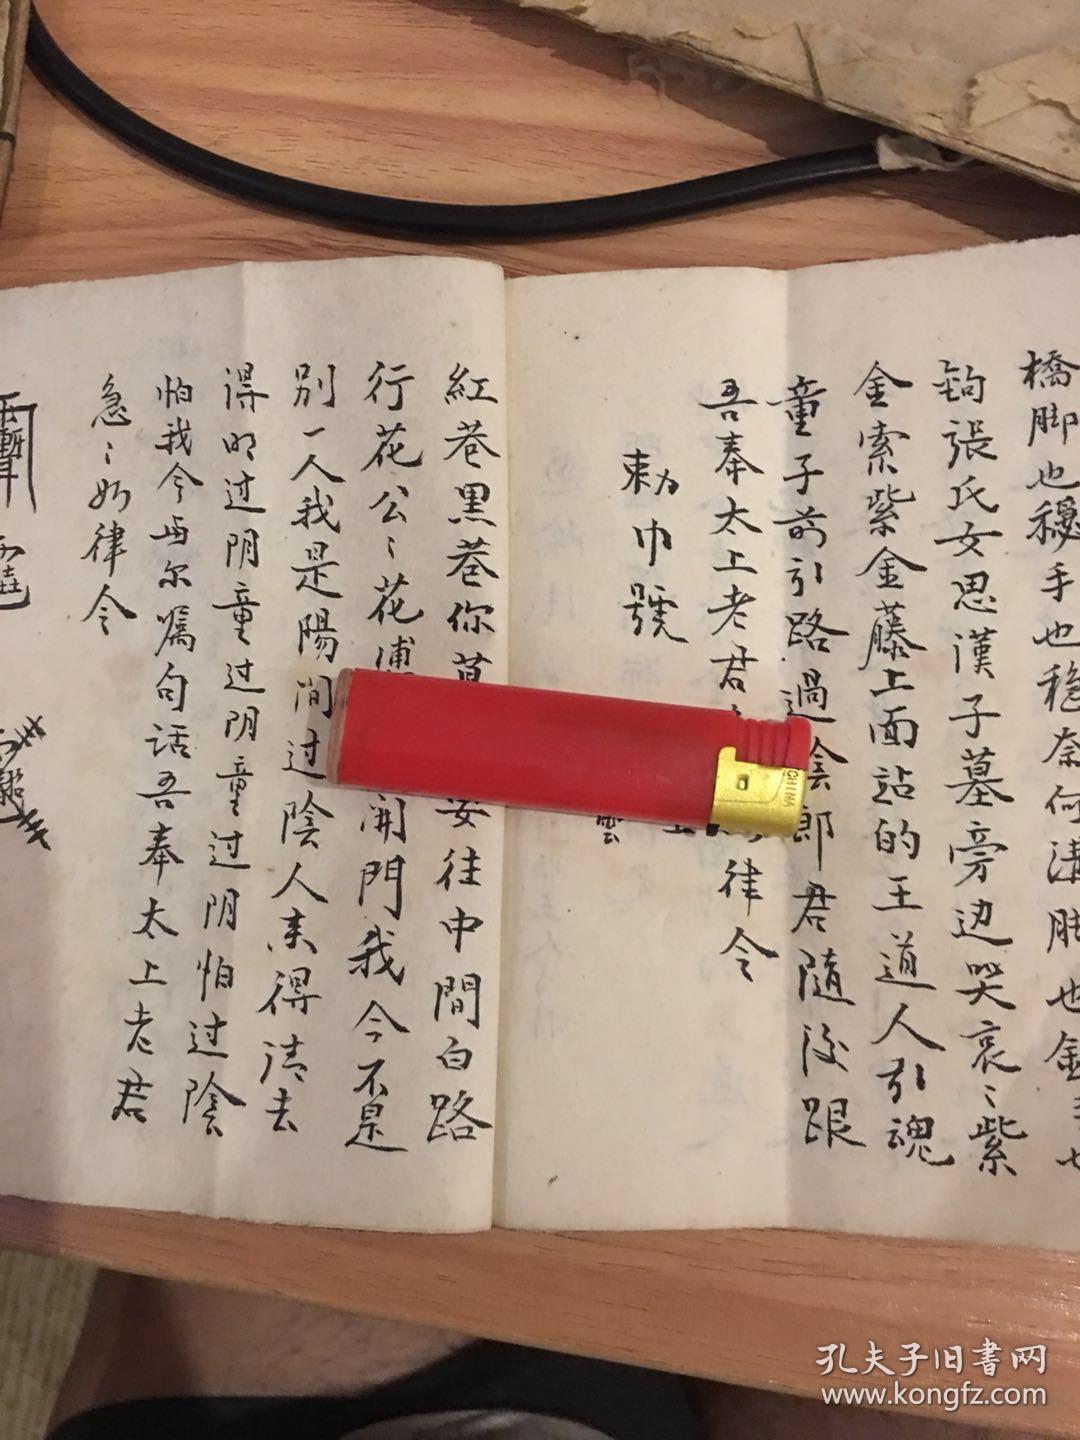 橋脚也穩手也稳奈何溝脚也金手也
鈎張氏女思漢子墓旁边哭哀〻紫
金索紫金藤上面站的王道人引魂
童子前引路過陰郎君隨後跟
吾奉太上老君律令
勅巾號
紅巷黑巷你莫妄往中間白路
行花公〻花開門我今不是
別一人我是陽间过陰人来得清去
得明过阴童过阴童过阴怕过陰
怕我今与尔嘱句话吾奉太上老君
急〻如律令
CHINA
孔夫子旧書网
www.kongfz.com